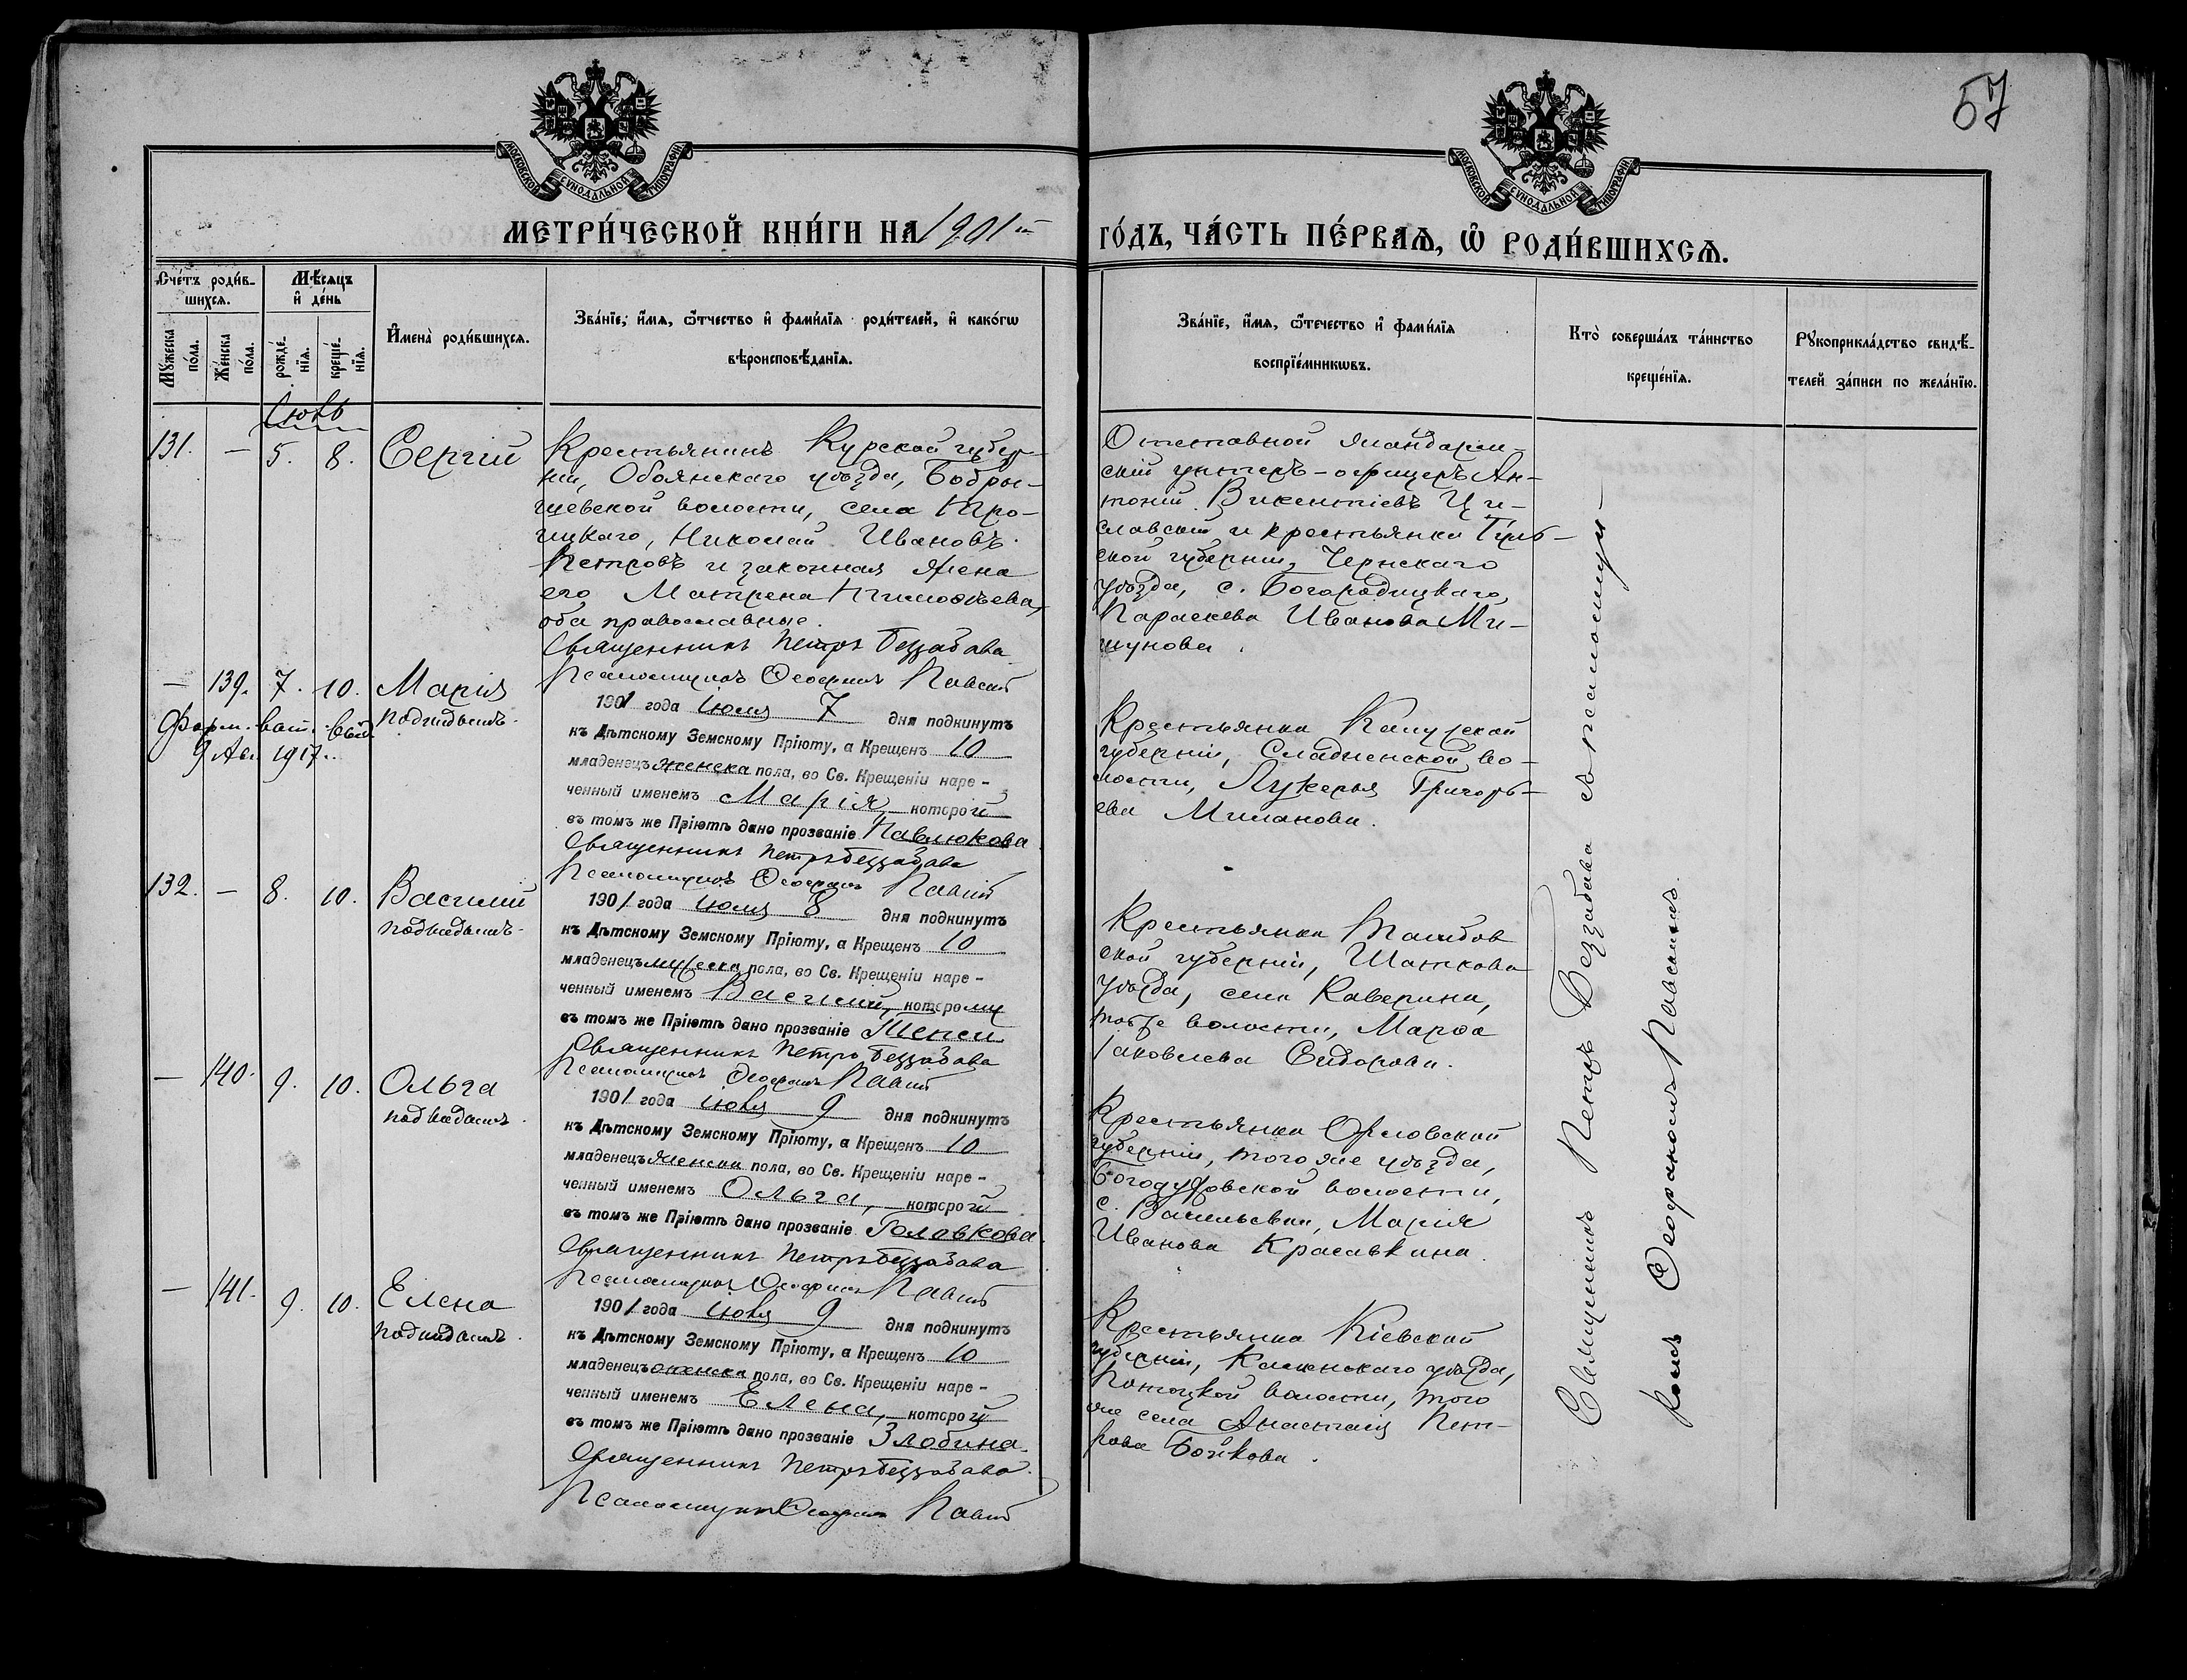 57
МОСКОВСКОЙ СѴНОДАЛЬНОЙ ТИПОГРАФІИ
МОСКОВСКОЙ СѴНОДАЛЬНОЙ ТИПОГРАФІИ
МЕТРИ́ЧЕСКОЙ КНИ́ГИ НА 1901й
ГО́ДЪ, ЧА́СТЬ ПЕ́РВАѦ, Ѡ РОДИ́ВШИХСѦ.
Сче́тъ роди́в-
шихсѧ.
Мꙋжеска по́ла.
Же́нска по́ла.
Мѣ́сѧцъ
и҆ де́нь
рожде́-
нїѧ.
креще́-
нїѧ.
И҆мена̀ роди́вшихсѧ.
Зва́нїе, и҆́мѧ, ѻ҆́тчество и҆ фами́лїѧ роди́телей, и҆ како́гѡ
вѣроисповѣ́данїѧ.
Зва́нїе, и҆́мѧ, ѻ҆те́чество и҆ фами́лїѧ
воспрїе́мникѡвъ.
Кто̀ соверша́лъ та́инство
креще́нїѧ.
Рꙋкоприкла́дство свидѣ́-
телей за́писи по жела́нїю.
Іюль
131. — 5. 8. Сергій
Крестьянинъ Курской губер-
ніи, Обоянскаго уѣзда, Бобры-
шевской волости, села Тро-
ицкаго, Николай Ивановъ
Петровъ и законная жена
его Матрона Тимоѳеева,
оба православные.
Священникъ Петръ Беззабава
Псаломщикъ Ѳеофанъ
Отставной жандарм-
скій унтеръ-офицеръ Ан-
тоній Викентіевъ Ци-
славскій и крестьянка Туль-
ской губерніи, Чернскаго
уѣзда, с. Богородицкаго,
Параскева Иванова Ми-
шунова.
— 139. 7. 10. Марія
подкидышъ.
9 Авг. 1917.
1901 года Іюля 7 дня подкинутъ
къ Дѣтскому Земскому Пріюту, а Крещенъ 10
младенецъ женска пола, во Св. Крещеніи наре-
ченный именемъ Марія, которой
въ томъ же Пріютѣ дано прозваніе Павлюкова
Священникъ Петръ Беззабава
Псаломщикъ Ѳеофанъ
Крестьянка Калужской
губерніи, Сладненской во-
лости, Лукерья Григорь-
ева Миланова.
132. — 8. 10. Василій
подкидышъ.
1901 года Іюля 8 дня подкинутъ
къ Дѣтскому Земскому Пріюту, а Крещенъ 10
младенецъ мужеска пола, во Св. Крещеніи наре-
ченный именемъ Василій, которому
въ томъ же Пріютѣ дано прозваніе
Священникъ Петръ Беззабава
Псаломщикъ Ѳеофанъ
Крестьянка Тамбов
ской губерніи, Шацкова
уѣзда, села Каверина,
той же волости, Марѳа
Яковлева Сидорова.
— 140. 9. 10. Ольга
подкидышъ.
1901 года Іюля 9 дня подкинутъ
къ Дѣтскому Земскому Пріюту, а Крещенъ 10
младенецъ женска пола, во Св. Крещеніи наре-
ченный именемъ Ольга, которой
въ томъ же Пріютѣ дано прозваніе Головкова.
Священникъ Петръ Беззабава
Псаломщикъ Ѳеофанъ
Крестьянка Орловской
губерніи, того же уѣзда,
Богодуховской волости,
с. Васильевки, Марія
Иванова Красавкина.
— 141. 9. 10. Елена
подкидышъ.
1901 года Іюля 9 дня подкинутъ
къ Дѣтскому Земскому Пріюту, а Крещенъ 10
младенецъ женска пола, во Св. Крещеніи наре-
ченный именемъ Елена, которой
въ томъ же Пріютѣ дано прозваніе Злобина.
Священникъ Петръ Беззабава.
Псаломщикъ Ѳеофанъ
Крестьянка Кіевской
губерніи, Каневскаго уѣзда,
Потоцкой волости, того
же села Анастасія Пет-
рова Бойкова.
Священникъ Петръ Беззабава съ псаломщи-
комъ Ѳеофаномъ